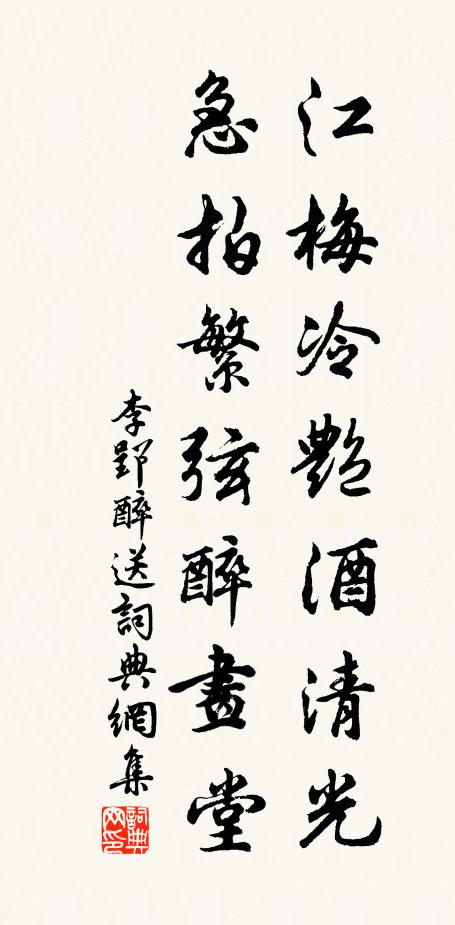 江梅冷艷酒清光
急拍繁弦醉畫堂
李郢醉送詞典網集
詞典網印